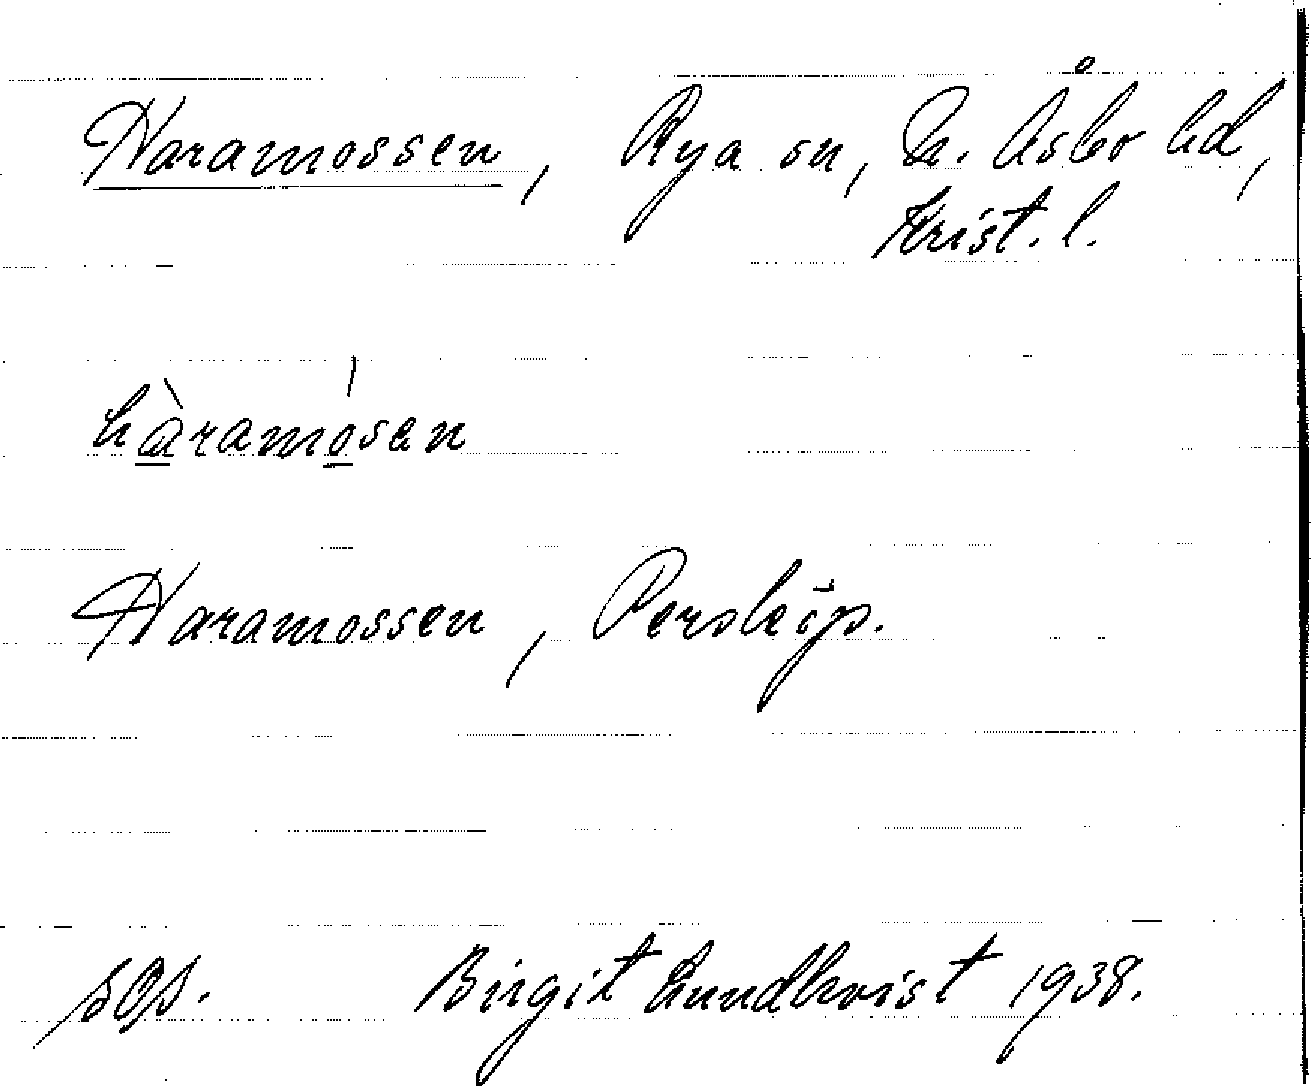 Haramossen, Rya sn, N. Åsbo hd,
Krist. l.
hàramósen
Haramossen, Persköp.
sOs. Birgit Lundkvist 1938.